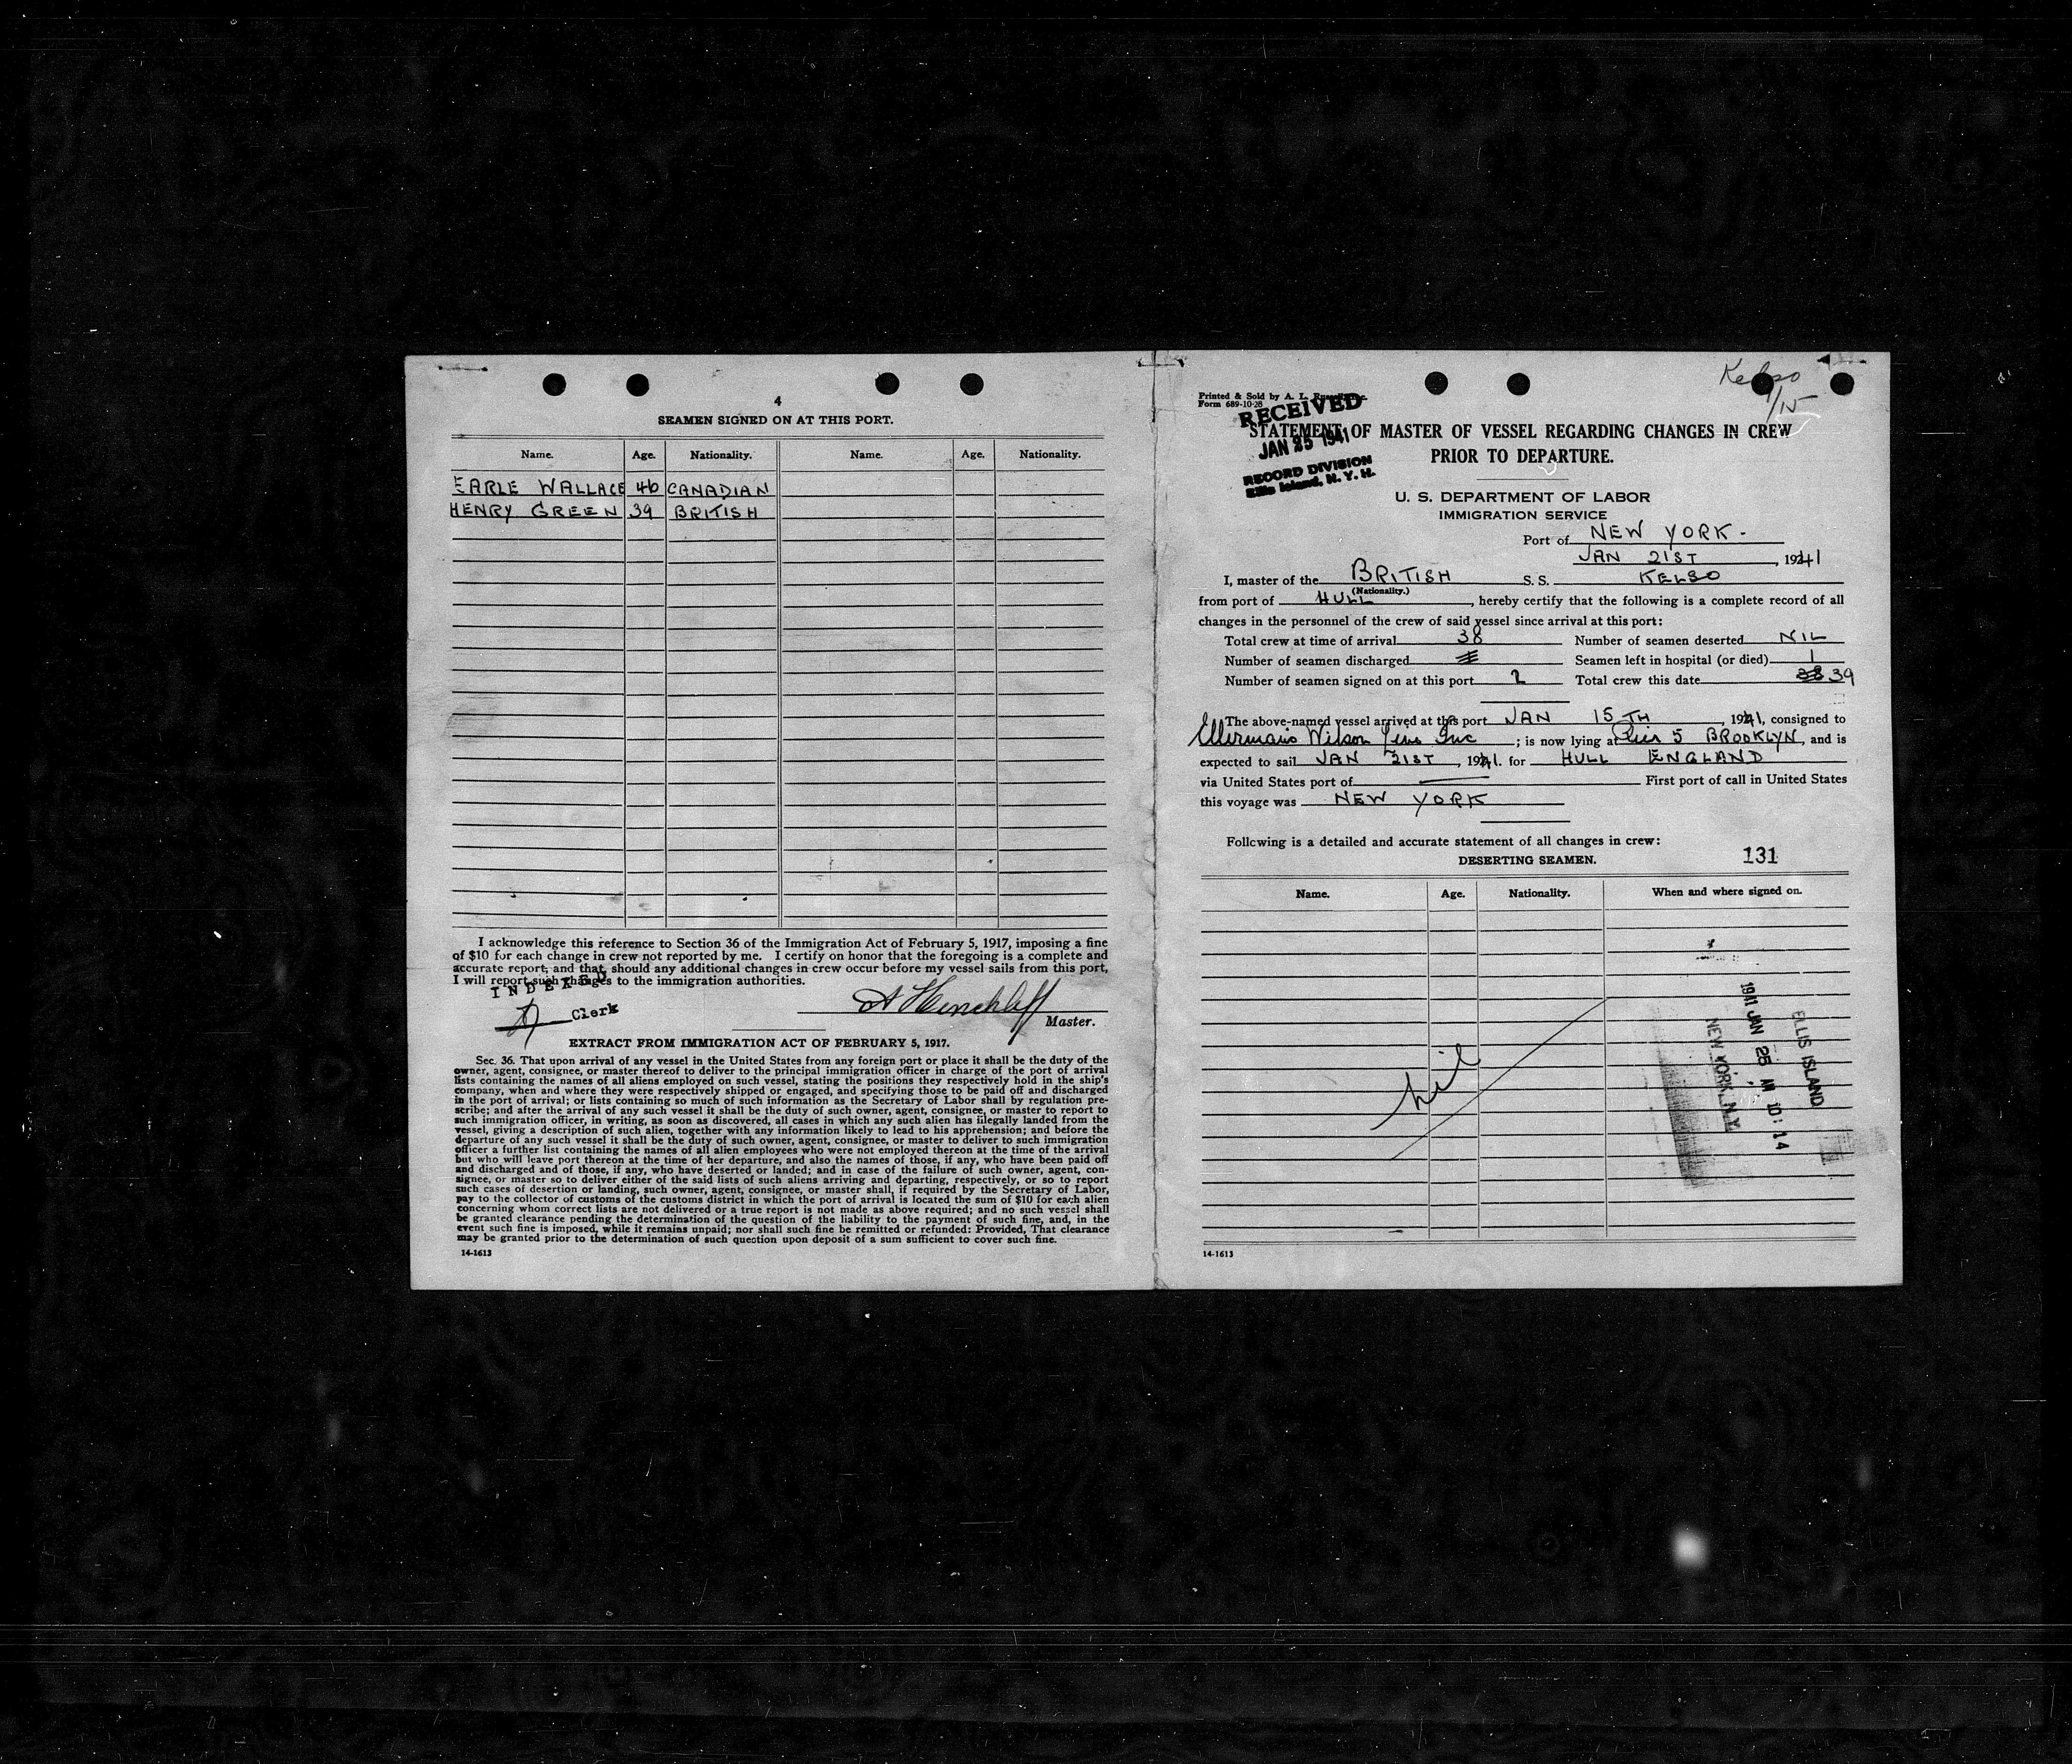 4
SEAMEN SIGNED ON AT THIS PORT.
Name. Age. Nationality. Name. Age. Nationality.
EARLE WALLACE 46 CANADIAN
HENRY GREEN 39 BRITISH
I acknowledge this reference to Section 36 of the Immigration Act of February 5, 1917, imposing a fine
of $10 for each change in crew not reported by me. I certify on honor that the foregoing is a complete and
accurate report; and that, should any additional changes in crew occur before my vessel sails from this port,
I will report such changes to the immigration authorities.
INDEXED
Clerk
Master.
EXTRACT FROM IMMIGRATION ACT OF FEBRUARY 5, 1917.
Sec. 36. That upon arrival of any vessel in the United States from any foreign port or place it shall be the duty of the
owner, agent, consignee, or master thereof to deliver to the principal immigration officer in charge of the port of arrival
lists containing the names of all aliens employed on such vessel, stating the positions they respectively hold in the ship's
company, when and where they were respectively shipped or engaged, and specifying those to be paid off and discharged
in the port of arrival; or lists containing so much of such information as the Secretary of Labor shall by regulation pre-
scribe; and after the arrival of any such vessel it shall be the duty of such owner, agent, consignee, or master to report to
such immigration officer, in writing, as soon as discovered, all cases in which any such alien has illegally landed from the
vessel, giving a description of such alien, together with any information likely to lead to his apprehension; and before the
departure of any such vessel it shall be the duty of such owner, agent, consignee, or master to deliver to such immigration
officer a further list containing the names of all alien employees who were not employed thereon at the time of the arrival
but who will leave port thereon at the time of her departure, and also the names of those, if any, who have been paid off
and discharged and of those, if any, who have deserted or landed; and in case of the failure of such owner, agent, con-
signee, or master so to deliver either of the said lists of such aliens arriving and departing, respectively, or so to report
such cases of desertion or landing, such owner, agent, consignee, or master shall, if required by the Secretary of Labor,
pay to the collector of customs of the customs district in which the port of arrival is located the sum of $10 for each alien
concerning whom correct lists are not delivered or a true report is not made as above required; and no such vessel shall
be granted clearance pending the determination of the question of the liability to the payment of such fine, and, in the
event such fine is imposed, while it remains unpaid; nor shall such fine be remitted or refunded: Provided, That clearance
may be granted prior to the determination of such question upon deposit of a sum sufficient to cover such fine.
14-1613
Kelso
1/15
Printed & Sold by A. L.
Form 689-10-28
RECEIVED
JAN 25 1941
RECORD DIVISION
Ellis Island, N. Y. H.
STATEMENT OF MASTER OF VESSEL REGARDING CHANGES IN CREW
PRIOR TO DEPARTURE.
U. S. DEPARTMENT OF LABOR
IMMIGRATION SERVICE
Port of NEW YORK.
JAN 21ST, 1941
I, master of the BRITISH S. S. KELSO
(Nationality.)
from port of HULL, hereby certify that the following is a complete record of all
changes in the personnel of the crew of said vessel since arrival at this port:
Total crew at time of arrival 38 Number of seamen deserted NIL
Number of seamen discharged Seamen left in hospital (or died) 1
Number of seamen signed on at this port 2 Total crew this date 38 39
The above-named vessel arrived at this port JAN 15TH, 1941, consigned to
Ellermans Wilson Line Inc; is now lying at Pier 5 BROOKLYN, and is
expected to sail JAN 21ST, 1941. for HULL ENGLAND
via United States port of First port of call in United States
this voyage was NEW YORK
Following is a detailed and accurate statement of all changes in crew:
DESERTING SEAMEN. 131
Name. Age. Nationality. When and where signed on.
nil
ELLIS ISLAND
1941 JAN 25 AM 10:14
NEW YORK, N.Y.
14-1613